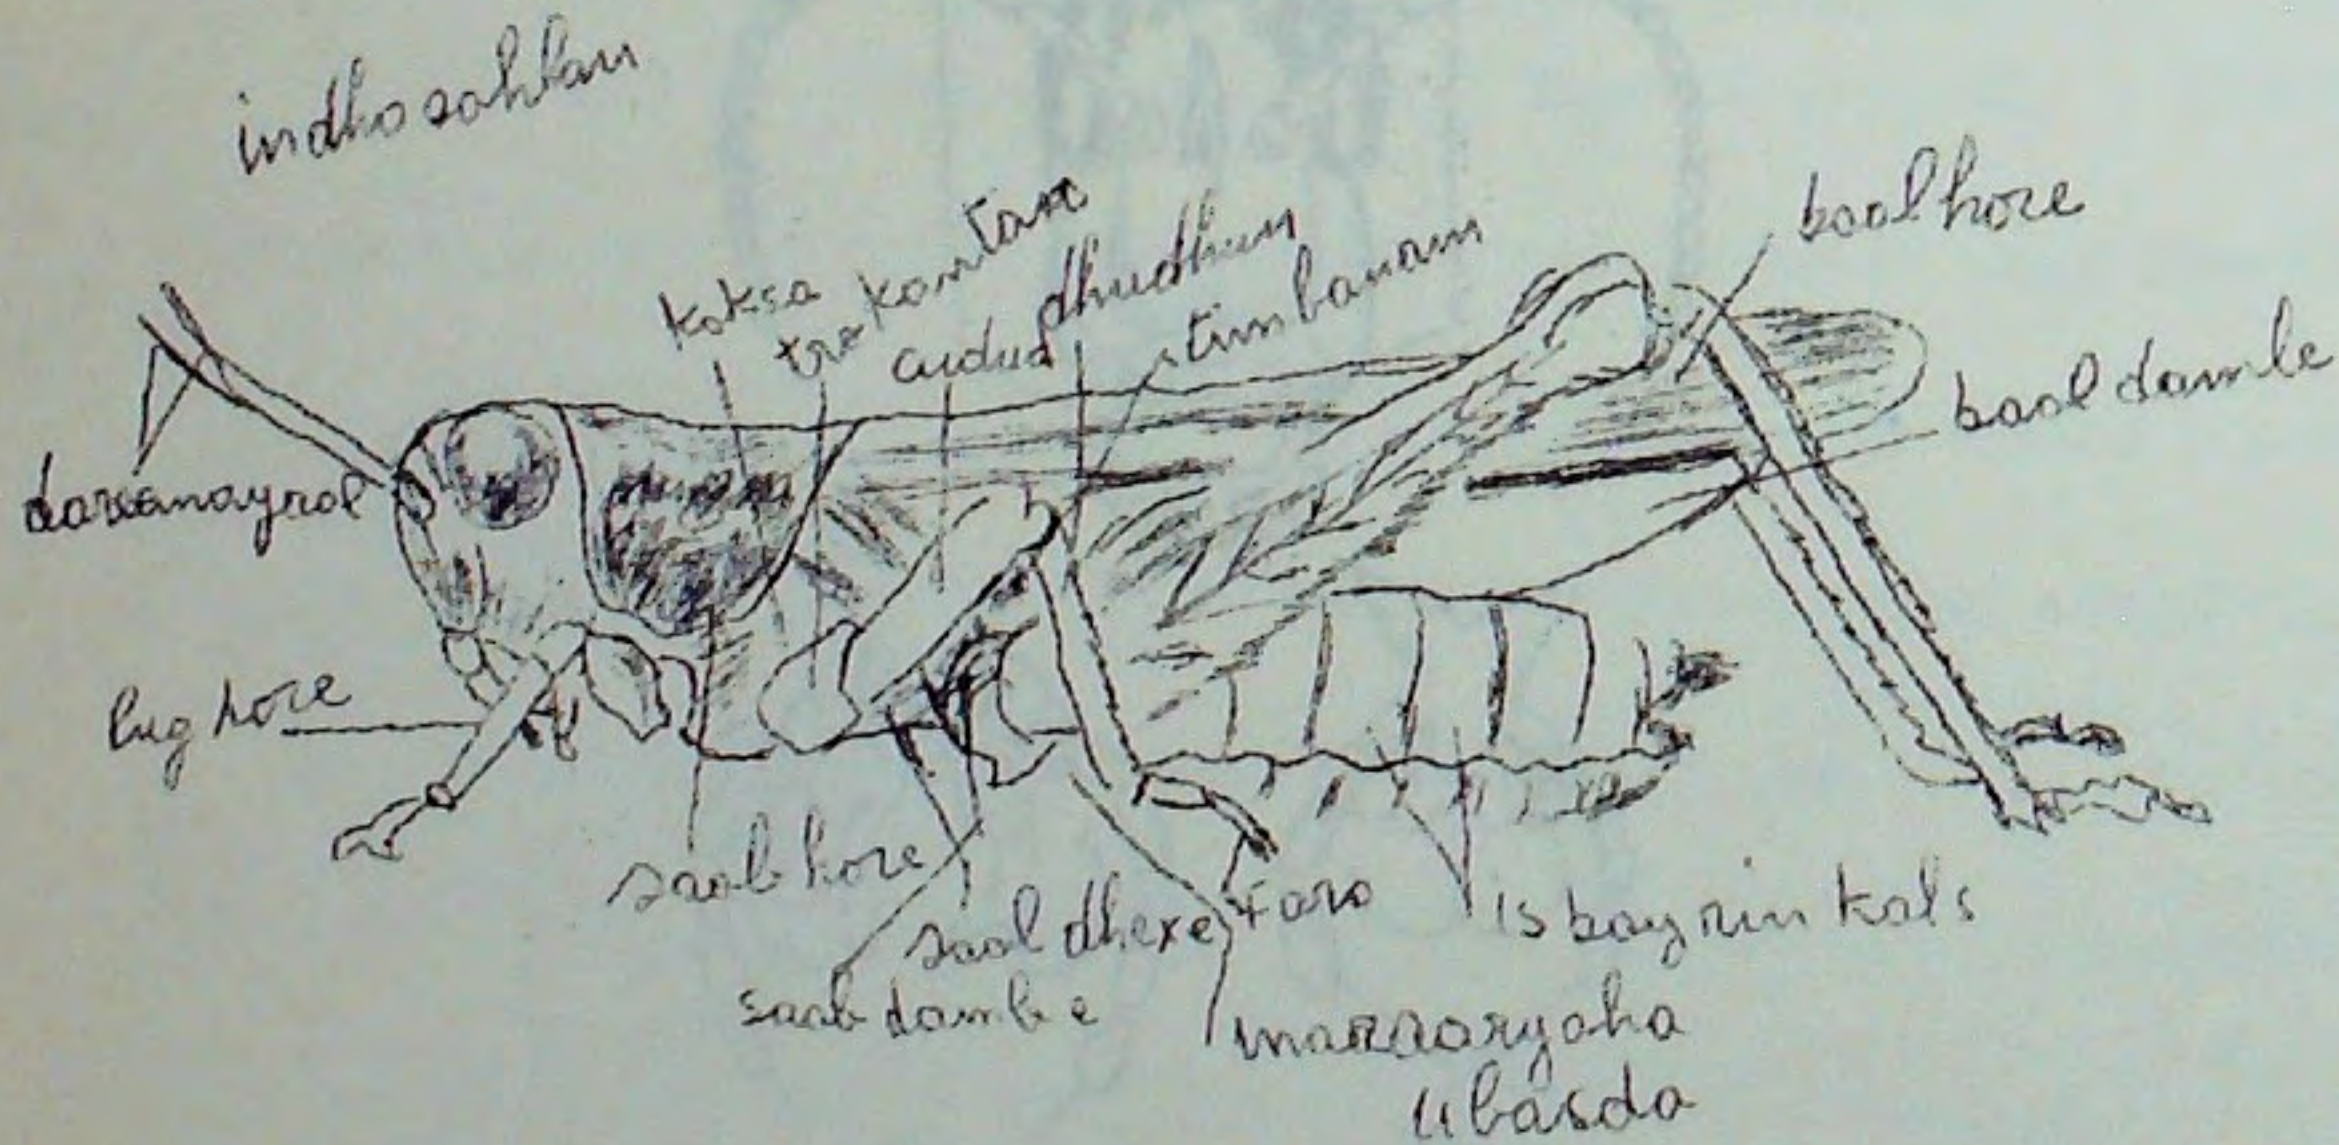 indho sahlan
koksa
trokantar
cudud
dhudhun
timbanam
baal hore
baal dambe
dareemayaal
lug hore
saab hore
saab dhexe
saab dambe
Faro
isbayrinkals
marraaryaha
ubasda